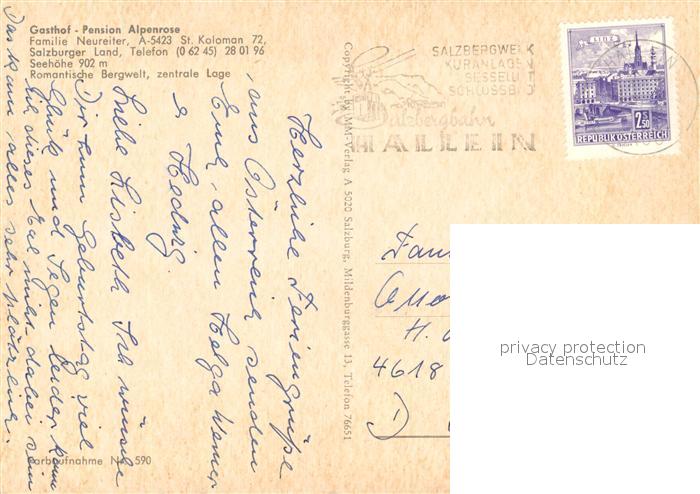 Gasthof - Pension Alpenrose
Familie Neureiter, A-5423 St. Koloman 72,
Salzburger Land, Telefon (0 62 45) 28 01 96
Seehöhe 902 m
Romantische Bergwelt, zentrale Lage
Herzliche Feriengrüße
aus Österreich senden
Euch allen Helga Werner
& Hedwig.
Liebe Lisbeth Ich wünsche
Dir zum Geburtstag viel
Glück und Segen leider kann
ich dieses Mal nicht dabei sein
Das kam alles sehr plötzlich.
Farbaufnahme Nr. 590
Copyright by MM-Verlag A 5020 Salzburg, Mildenburggasse 13, Telefon 76651
SALZBERGWERK
KURANLAGEN
SESSELLIFT
SCHLOSSBAD
Salzbergbahn
HALLEIN
LINZ
2.50
S
REPUBLIK ÖSTERREICH
Fam
H.
4618
D
privacy protection
Datenschutz